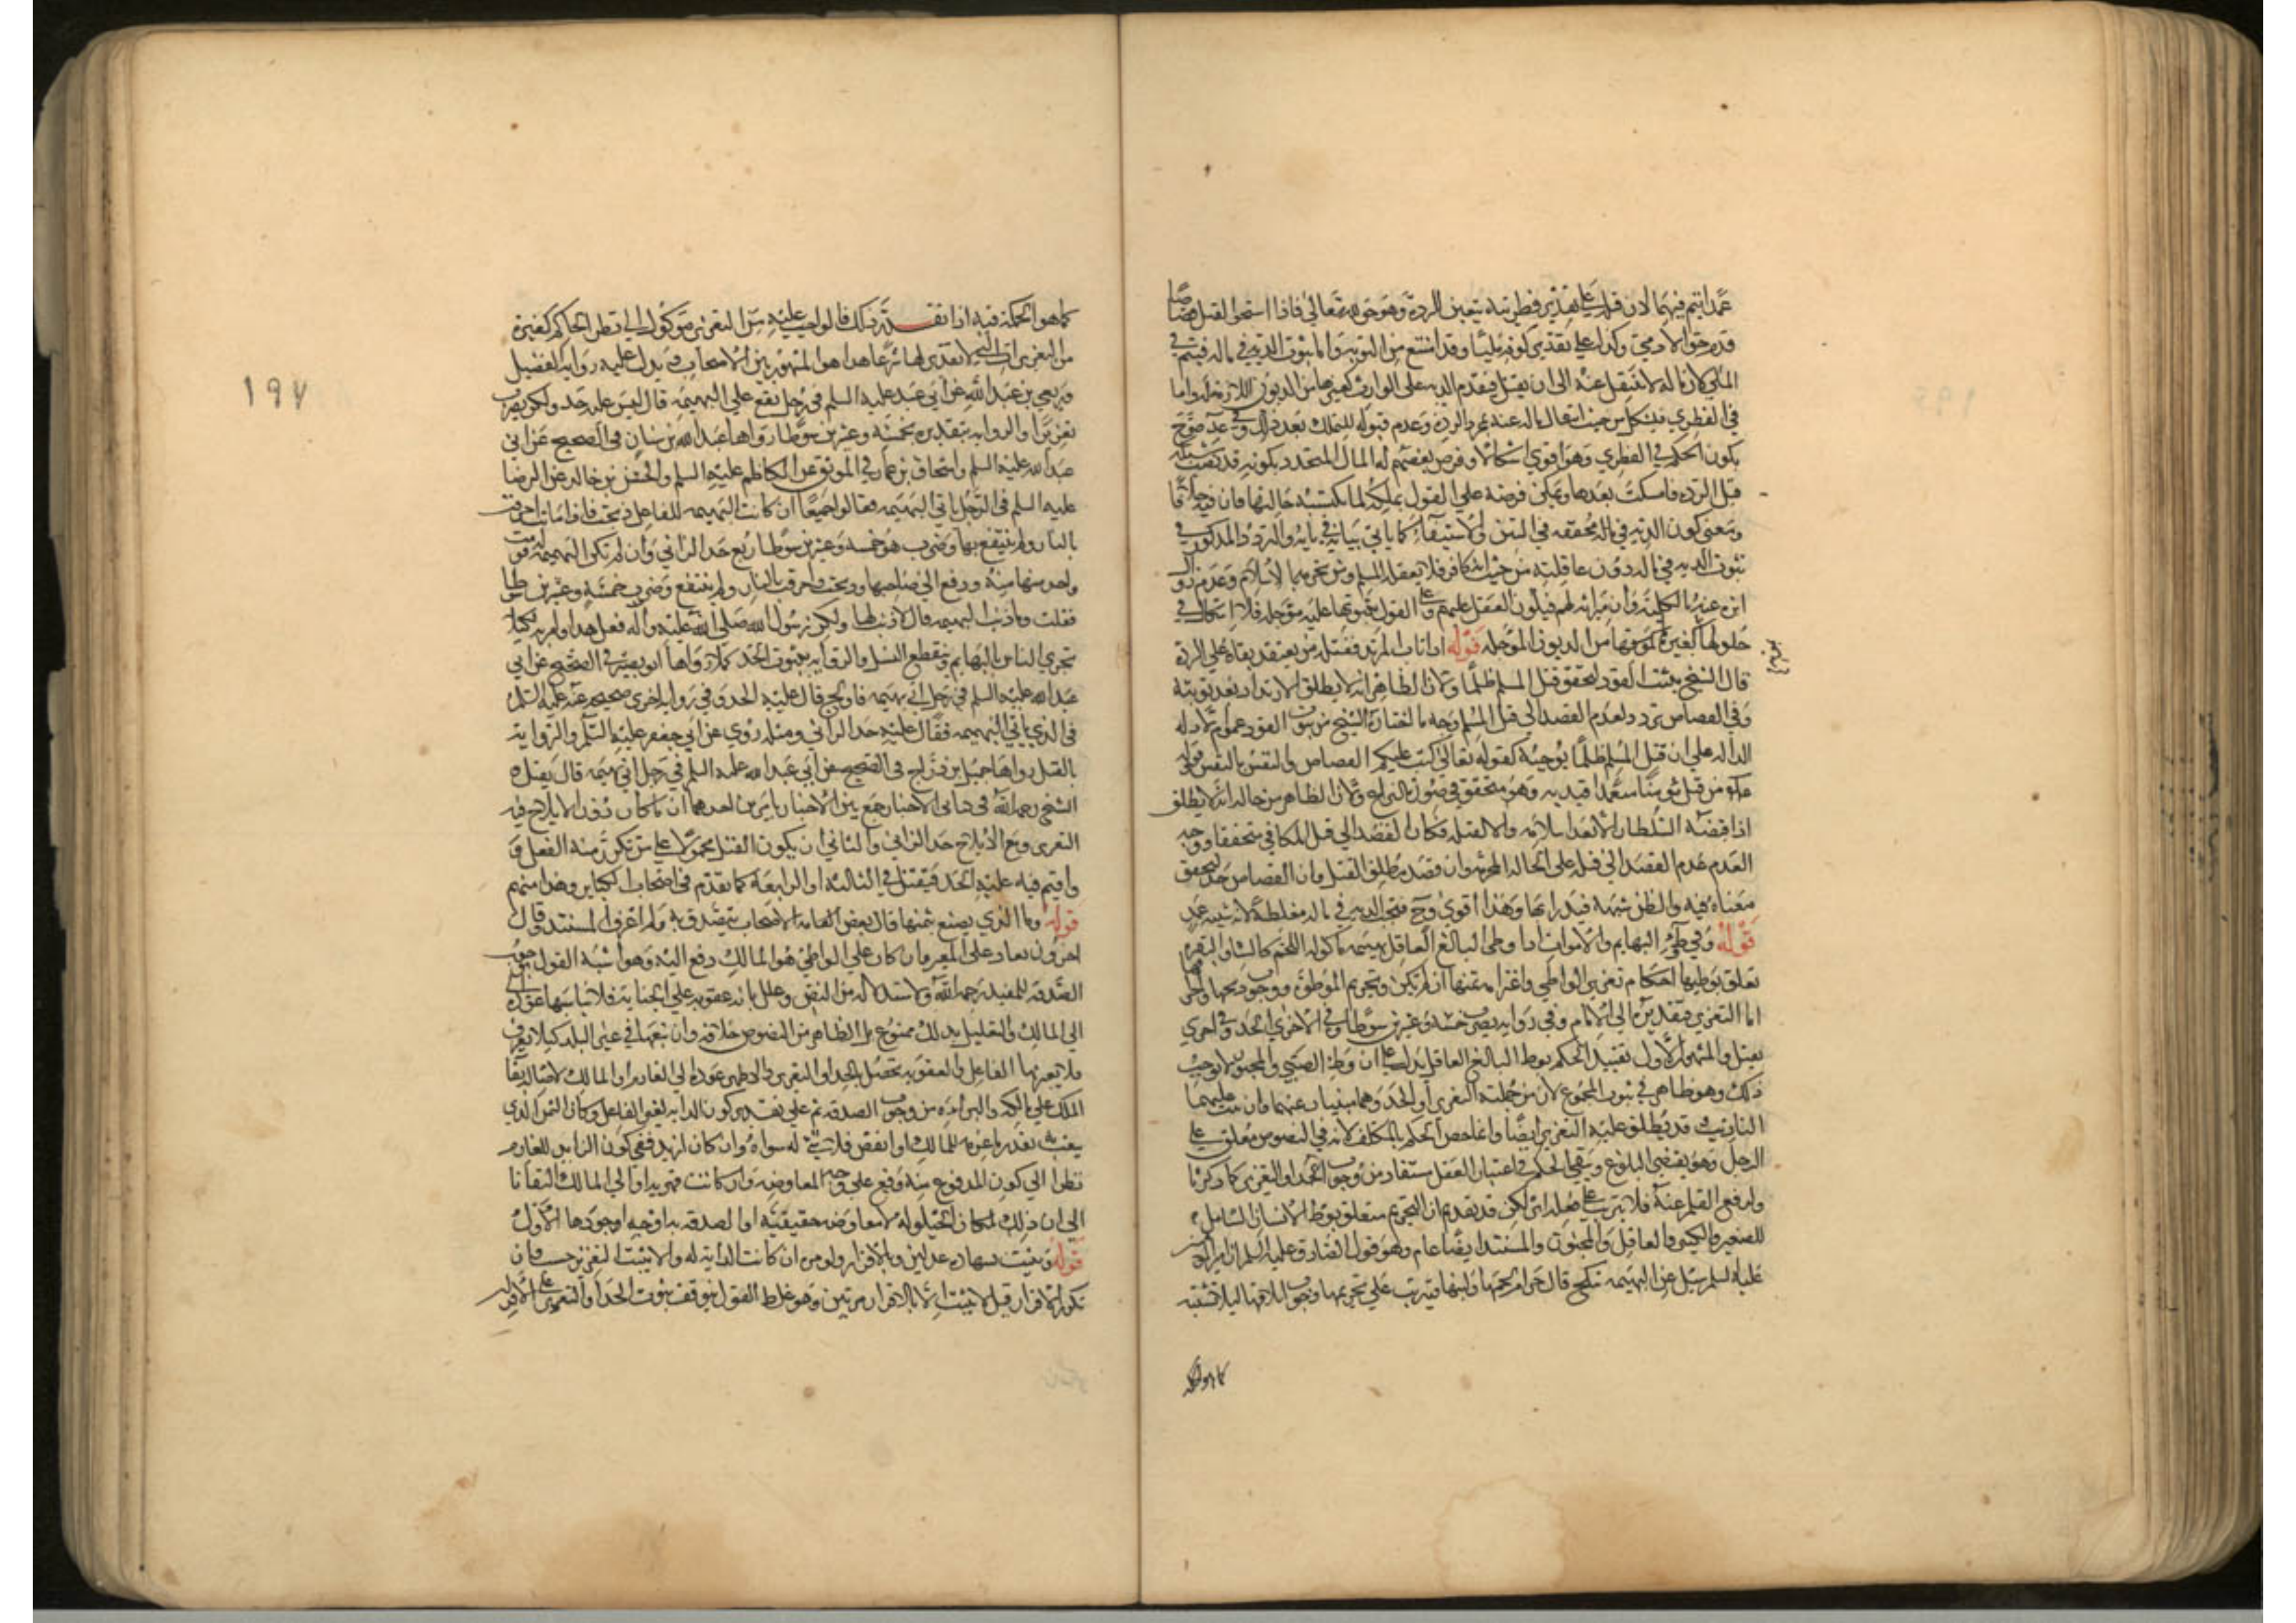 عمدا يتم فيهما لان قتله على تقدير فطريته يتعين للردة وهو حق لله تعالى فاذا استحق القتل قصاصا
قدم حق الادمي وكذا على تقدير كونه مليا وقد امتنع من التوبة واما ثبوت الدية في ماله فيتم في
الملي لان ماله لا ينتقل عنه الى ان يقتل فيقدم الدية على الوارث كغيرها من الديون اللازمة له واما
في الفطري فيشكل من حيث انتقال ماله عنه بمجرد الردة وعدم قبوله للتملك بعد ذلك وفي عدة مواضع
يكون الحكم في الفطري وهو اقوى اشكالا وفرض بعضهم له المال المتجدد بكونه قد نصب شبكة
قبل الردة فامسكت بعدها ويمكن فرضه على القول بملكه لما يكتسبه حالتها فان فيه خلافا
ومعنى كون الدية في ماله محققه في الستين او الاستيفاء كما ياتي بيانه في بابه والتردد المذكور في
ثبوت الدية في ماله دون عاقلته من حيث انه كافر فلا يعقله المسلم ومن تحرمه بالاسلام وعدم زوال
ارثه عنه بالكلية وان ميراثه لهم فيكون العقل عليهم وعلى القول بثبوتها عليه مؤجله فلا اشكال في
حلولها كغيره بموته من الديون المؤجله قوله اذا تاب المرتد فقتله من يعتقد بقاه على الردة
قال الشيخ يثبت القود لتحقق قتل المسلم ظلما ولان الظاهر انه لا يطلق الارتداد بعد توبته
وفي القصاص تردد لعدم القصد الى قتل المسلم وجه ما اختاره الشيخ من ثبوت القود عموم الادله
الداله على ان قتل المسلم ظلما يوجبه كقوله تعالى كتب عليكم القصاص والنفس بالنفس وقوله
من قتل مؤمنا متعمدا قيد به وهو متحقق في صورة النزاع ولان الظاهر من حاله انه لا يطلق
اذا قبضه السلطان الا بعد اسلامه والا لقتله فكان القصد الى قتل المكافي متحققا ووجه
العدم عدم القصد الى قتله على الحاله المحرمه وان قصد مطلق القتل فان القصاص حد لتحقق
معناه فيه والظن شبهة فيدرا بها وهذا اقوى وح فتجب الدية في ماله مغلظة لانه شبيه عمد
قوله في وطي البهايم والاموات اذا وطي البالغ العاقل بهيمه ماكوله اللحم كالشاه والبقرة
تعلق بوطيها احكام تعزير الواطي واغرامه ثمنها ان لم تكن له وتحريم الموطوة ووجوب ذبحها واحراقها
اما التعزير فتقديره الى الامام وفي رواية يضرب خمسة وعشرين سوطا وفي الاخرى الحد وفي اخرى
يقتل والمشهور الاول تقييد الحكم بوطي البالغ العاقل يدل على ان وطي الصبي والمجنون لا يوجب
ذلك وهو ظاهر في ثبوت المجموع لان من جملته التعزير او الحد وهما منفيان عنهما وان ثبت عليهما
التاديب وقد يطلق عليه التعزير ايضا وانما خص الحكم بالمكلف لانه في النصوص معلق على
الرجل وهو يقتضي البلوغ ويبقى الحكم في اعتبار العقل مستفاد من وجوب الحد او التعزير كما ذكرنا
ولرفع القلم عنه فلا يترتب على فعله اثر لكن قد تقدم ان التحريم متعلق بوطي الانسان الشامل
للصغير والكبير والعاقل والمجنون والمستند ايضا عام وهو قول الصادق عليه السلم ان امير المؤمنين
عليه السلم سئل عن البهيمه تنكح قال حرام لحمها ولبنها فيترتب على تحريمها وجوب اتلافها ليلا تشتبه
كما هو الحكمة
١٩٧
كما هو الحكمة فيه اذا تقرر ذلك فالواجب عليه من التعزير موكول الى نظر الحاكم كغيره
من التعزيرات التي لا تقدير لها شرعا هذا هو المشهور بين الاصحاب ويدل عليه رواية الفضيل
وربعي بن عبد الله عن ابي عبد الله عليه السلم في رجل يقع على البهيمه قال ليس عليه حد ولكن يضرب
تعزيرا والروايه بتقديره بخمسه وعشرين سوطا رواها عبد الله بن سنان في الصحيح عن ابي
عبد الله عليه السلم واسحاق بن عمار في الموثق عن الكاظم عليه السلم والحسين بن خالد عن الرضا
عليه السلم في الرجل ياتي البهيمه فقالوا جميعا ان كانت البهيمه للفاعل ذبحت فاذا ماتت احرقت
بالنار ولم ينتفع بها وضرب هو خمسه وعشرين سوطا ربع حد الزاني وان لم تكن البهيمه له قومت
واخذ ثمنها منه ودفع الى صاحبها وذبحت واحرقت بالنار ولم ينتفع وضرب خمسة وعشرين سوطا
فقلت وما ذنب البهيمه قال لا ذنب لها ولكن رسول الله صلى الله عليه وآله فعل هذا وامر به لكيلا
تجري الناس بالبهايم وينقطع النسل والروايه بثبوت الحد كملا رواها ابو بصير في الصحيح عن ابي
عبد الله عليه السلم في رجل اتى بهيمه فاولج قال عليه الحد وفي رواية اخرى صحيحه عنه عليه السلم
في الذي ياتي البهيمه فقال عليه حد الزاني ومثله روي عن ابي جعفر عليه السلم والرواية
بالقتل رواها جميل بن دراج في الصحيح عن ابي عبد الله عليه السلم في رجل اتى بهيمه قال يقتل و
الشيخ رحمه الله في كتابي الاخبار جمع بين الاخبار بامرين احدهما ان ما كان دون الايلاج فيه
التعزير ومع الايلاج حد الزاني والثاني ان يكون القتل محمولا على من تكرر منه الفعل
واقيم فيه عليه الحد فيقتل في الثالثة او الرابعة كما تقدم في اصحاب الكباير وهذا منهم
قوله وما الذي يصنع بثمنها قال بعض الاصحاب يتصدق به ولم اعرف المستند وقال
اخرون يعاد على المغرم وان كان على الواطي هو المالك دفع اليه وهو اشبه القول بوجوب
الصدقة للمفيد رحمه الله ولا مستند له من النص وعلل بانه عقوبه على الجناية فلا يناسبها عوده
الى المالك والتعليل بذلك ممنوع بل الظاهر من النصوص خلافه وان بيعها في غير البلد كيلا يعرف
ولا يعير بها الفاعل والعقوبه تحصل بالحد او التعزير فالاظهر عوده الى الغارم او المالك لاصالة بقا
الملك على مالكه والبراءه من وجوب الصدقه ثم على تقدير كون الدابه لغير الفاعل وكان الثمن الذي
بيعت به بقدر ما غرمه للمالك او انقص فلا شي له سواه وان كان ازيد ففي كون الزايد للغارم
نظرا الى كون المدفوع منه وقع على وجه المعاوضه وان كانت قهريه او الى المالك التفاتا
الى ان ذلك لمكان الحيلوله لا معاوضه حقيقيه او الصدقه به اوجه اوجودها الاول
قوله ويثبت بشهاده عدلين وبالاقرار ولو مره ان كانت الدابه له والا يثبت التعزير حسب وان
تكرر الاقرار قيل لا يثبت الا بالاقرار مرتين وهو غلط القول بتوقف ثبوت الحد او التعزير على الاقرار